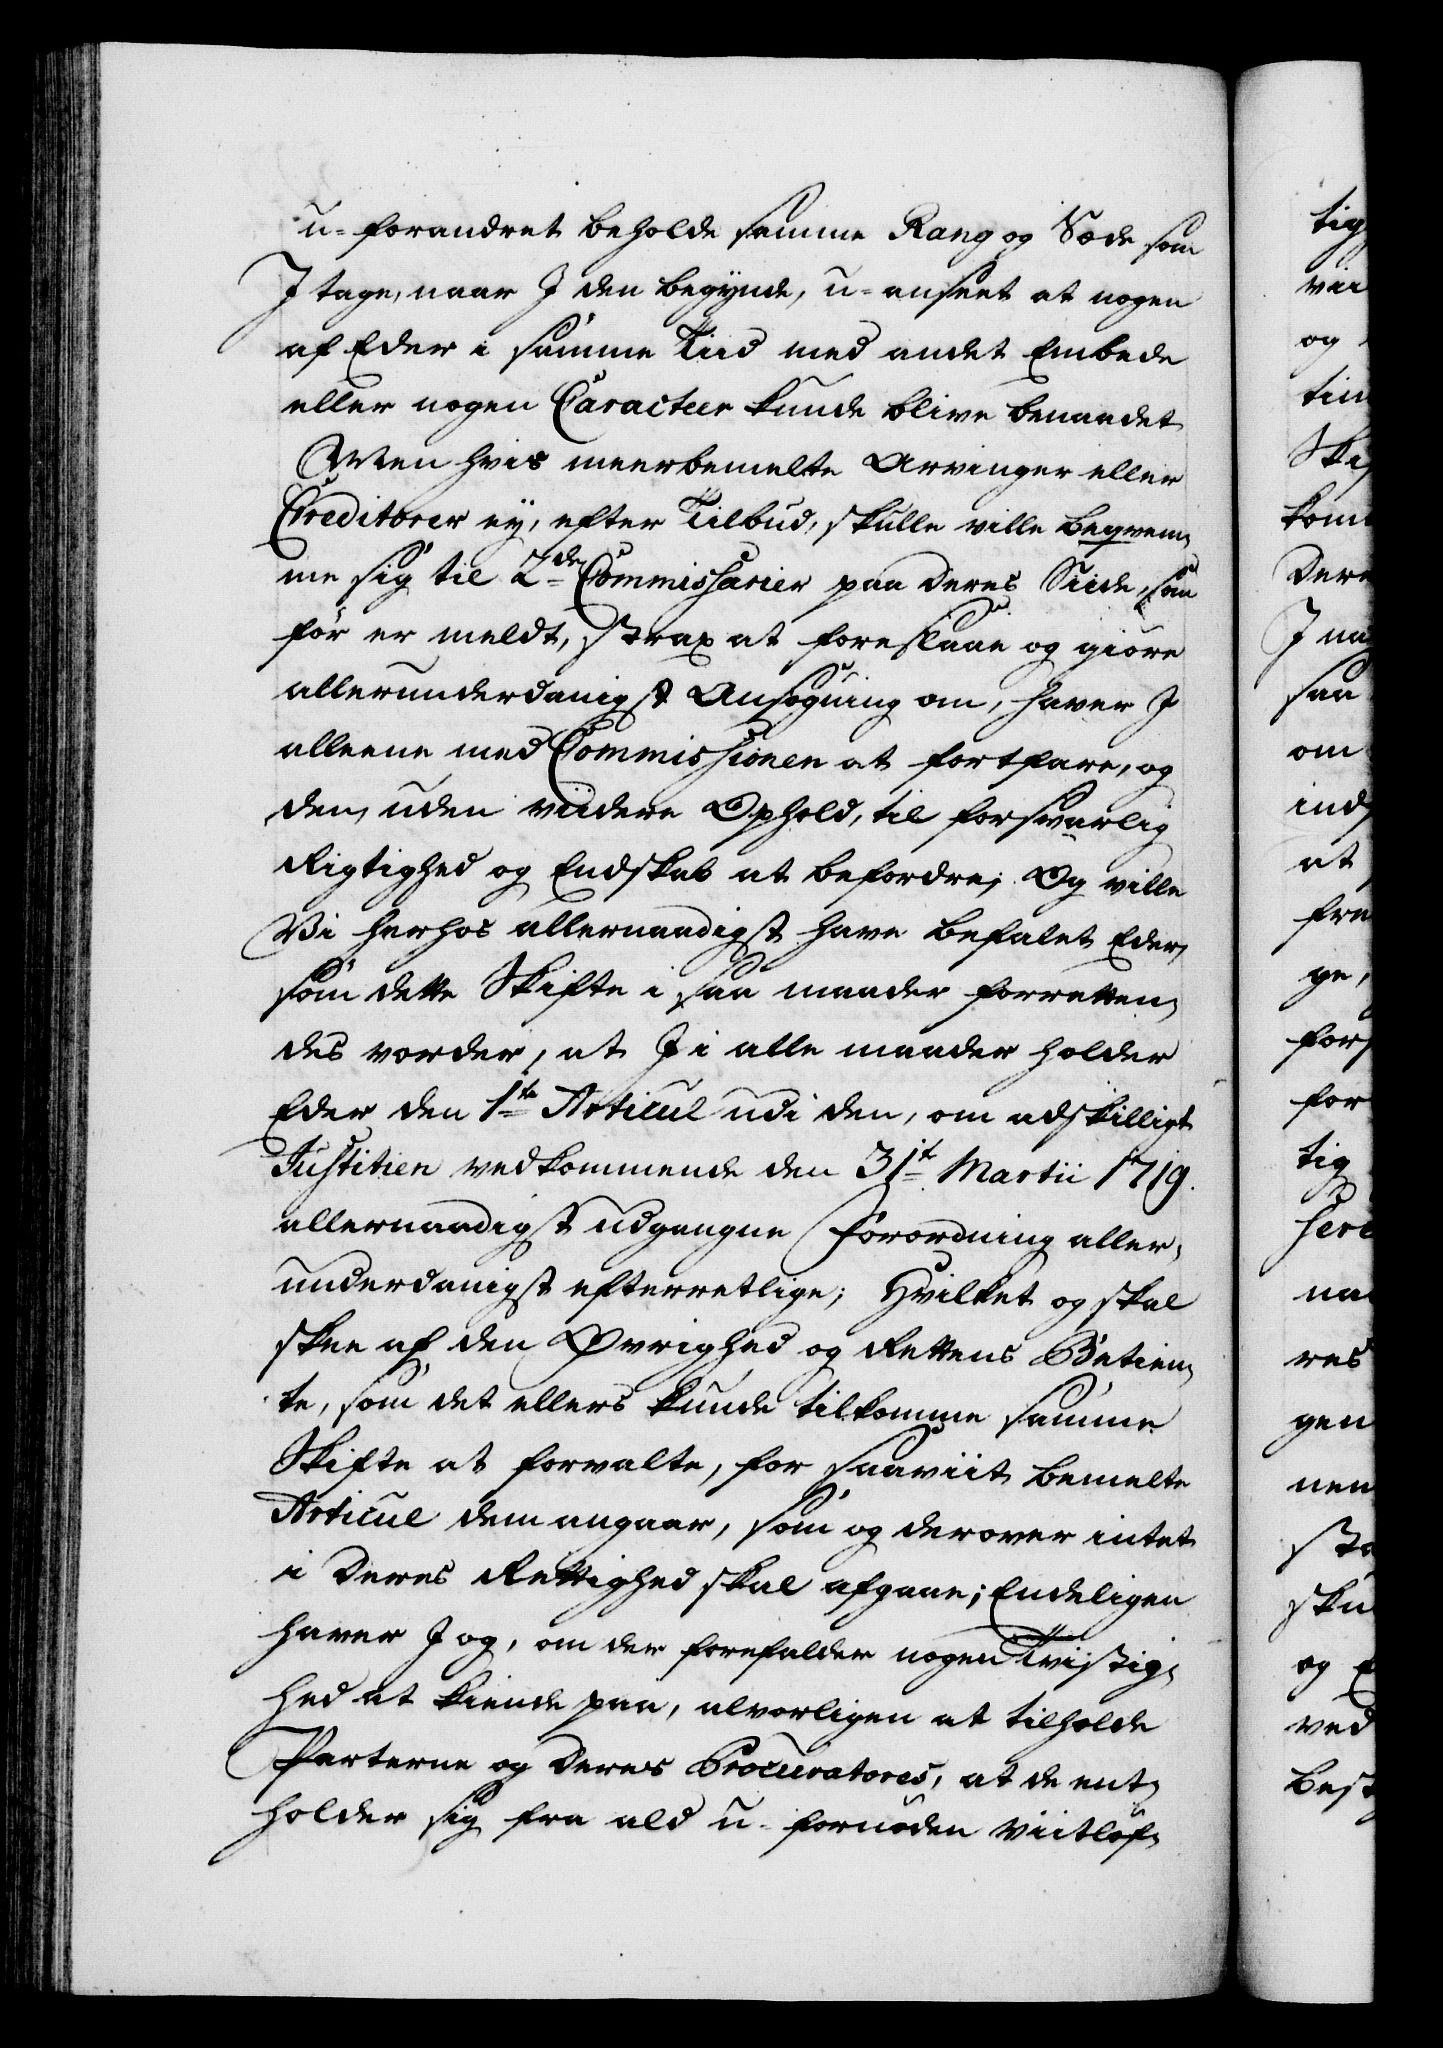 u-forandret beholde samme Rang og Sæde som
I tage, naar I den begynde, u-anseet at nogen
af Eder i samme Tiid med andet Embede
eller nogen Caracteer kunde blive benaadet
Men hvis meerbemelte Arvinger eller
Creditorer ey, efter Tilbud, skulle ville beqvem,
me sig til 2de Commissarier paa Deres Siide, som
før er meldt, strax at foreslaae og giøre
allerunderdanigst Ansøgning om, haver I
alleene med Commissionen at fortfare, og
den, uden viidere Ophold, til forsvarlig
Rigtighed og Endskab at befordre; Og ville
Vi herhos allernaadigst have befalet Eder,
som dette Skifte i saa maader forretten,
des vorder, at I i alle maader holder
Eder den 1te Articul udi den, om adskilligt
Justitien vedkommende den 31t Martii 1719.
allernaadigst udgangne Forordning aller,
underdanigst efterretlige; Hvilket og skal
skee af den Øvrighed og Rettens Betien,
te, som det ellers kunde tilkomme samme
Skifte at forvalte, for saaviit bemelte
Articul dem angaar, som og derover intet
i Deres Rettighed skal afgaae; Endeligen
haver I og, om der forefalder nogen Tvistig,
hed at kiende paa, alvorligen at tilholde
Parterne og Deres Procuratores, at de ent,
holder sig fra ald u-fornøden Viitløf,
tig
vii
og
tin
Ski
kom
Dere
I na
saa
om
ind
at
fre
ge,
for
for
tig
na
res
gen
nen
sku
og
ved
best